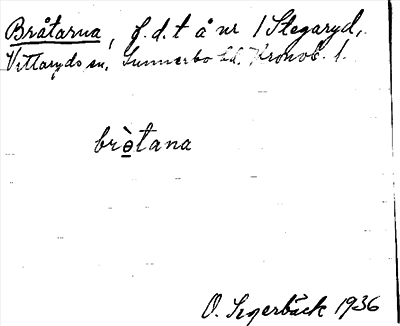 Bråtarna, f.d.t å nr 1 Stegaryd,
Vittaryds sn, Sunnerbo hd. Kronob. l.
brò̱tana
O. Segerbäck 1936